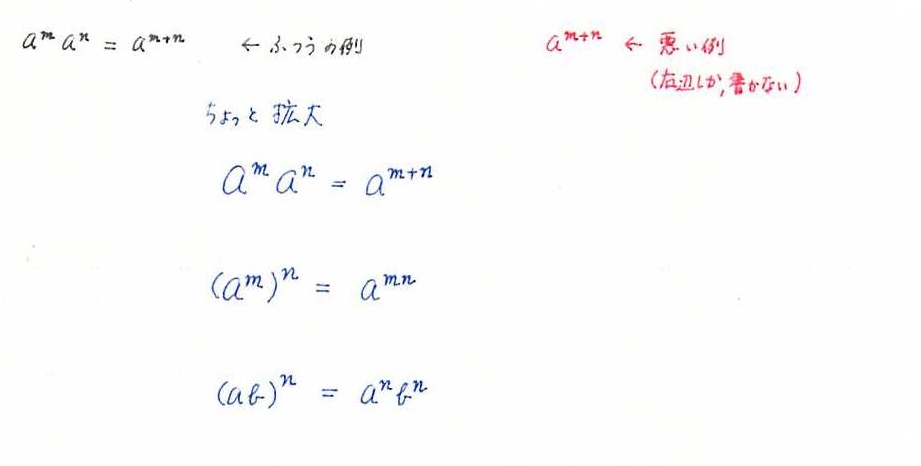 aᵐ aⁿ = aᵐ⁺ⁿ ← ふつうの例
aᵐ⁺ⁿ ← 悪い例
(右辺しか,書かない)
ちょっと拡大
aᵐ aⁿ = aᵐ⁺ⁿ
(aᵐ)ⁿ = aᵐⁿ
(ab)ⁿ = aⁿbⁿ